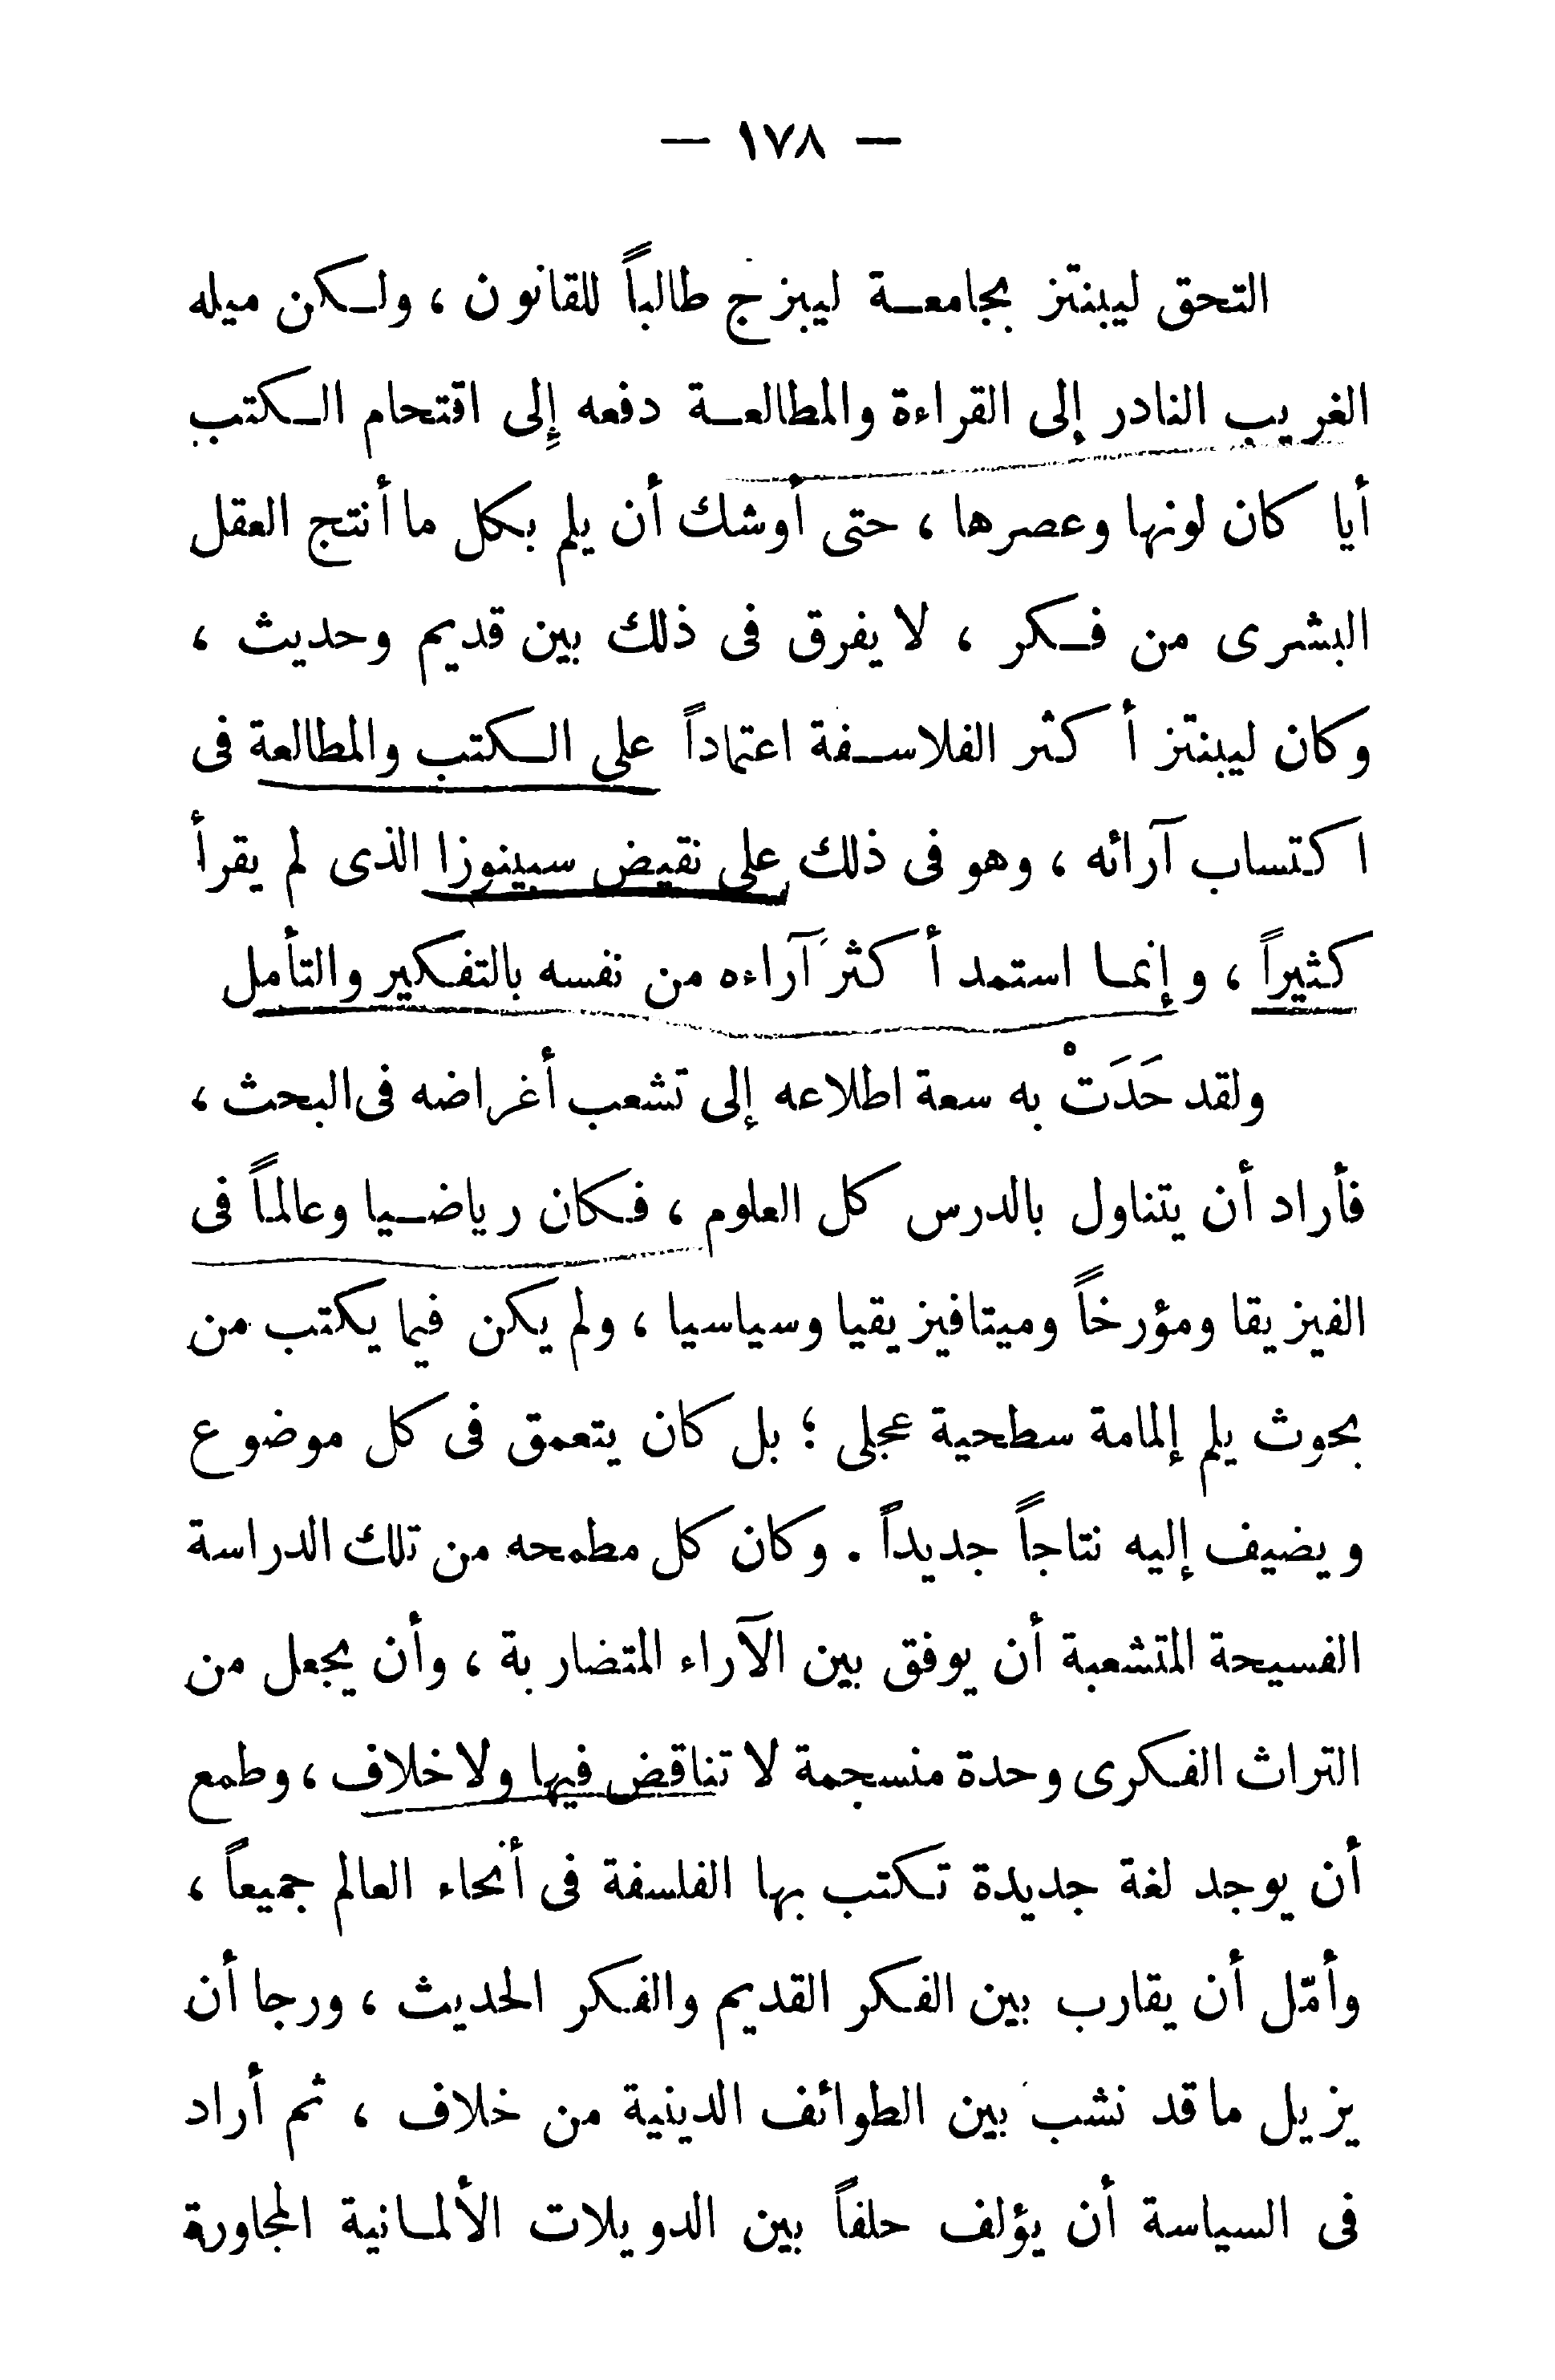 — ١٧٨ —
التحق ليبنتز بجامعة ليبزج طالباً للقانون ، ولكن ميله
الغريب النادر إلى القراءة والمطالعة دفعه إلى اقتحام الكتب
أيا كان لونها وعصرها ، حتى أوشك أن يلم بكل ما أنتج العقل
البشرى من فكر ، لا يفرق فى ذلك بين قديم وحديث ،
وكان ليبنتز أكثر الفلاسفة اعتماداً على الكتب والمطالعة فى
اكتساب آرائه ، وهو فى ذلك على نقيض سبينوزا الذى لم يقرأ
كثيراً ، وإنما استمد أكثرَ آراءه من نفسه بالتفكير والتأمل
ولقد حَدَتْ به سعة اطلاعه إلى تشعب أغراضه فى البحث ،
فأراد أن يتناول بالدرس كل العلوم ، فكان رياضيا وعالماً فى
الفيزيقا ومؤرخاً وميتافيزيقيا وسياسيا ، ولم يكن فيما يكتب من
بحوث يلم إلمامة سطحية عجلى ؛ بل كان يتعمق فى كل موضوع
ويضيف إليه نتاجاً جديداً . وكان كل مطمحه من تلك الدراسة
الفسيحة المتشعبة أن يوفق بين الآراء المتضاربة ، وأن يجعل من
التراث الفكرى وحدة منسجمة لا تناقض فيها ولا خلاف ، وطمع
أن يوجد لغة جديدة تكتب بها الفلسفة فى أنحاء العالم جميعاً ،
وأمّل أن يقارب بين الفكر القديم والفكر الحديث ، ورجا أن
يزيل ما قد نشب بين الطوائف الدينية من خلاف ، ثم أراد
فى السياسة أن يؤلف حلفاً بين الدويلات الألمانية المجاورة